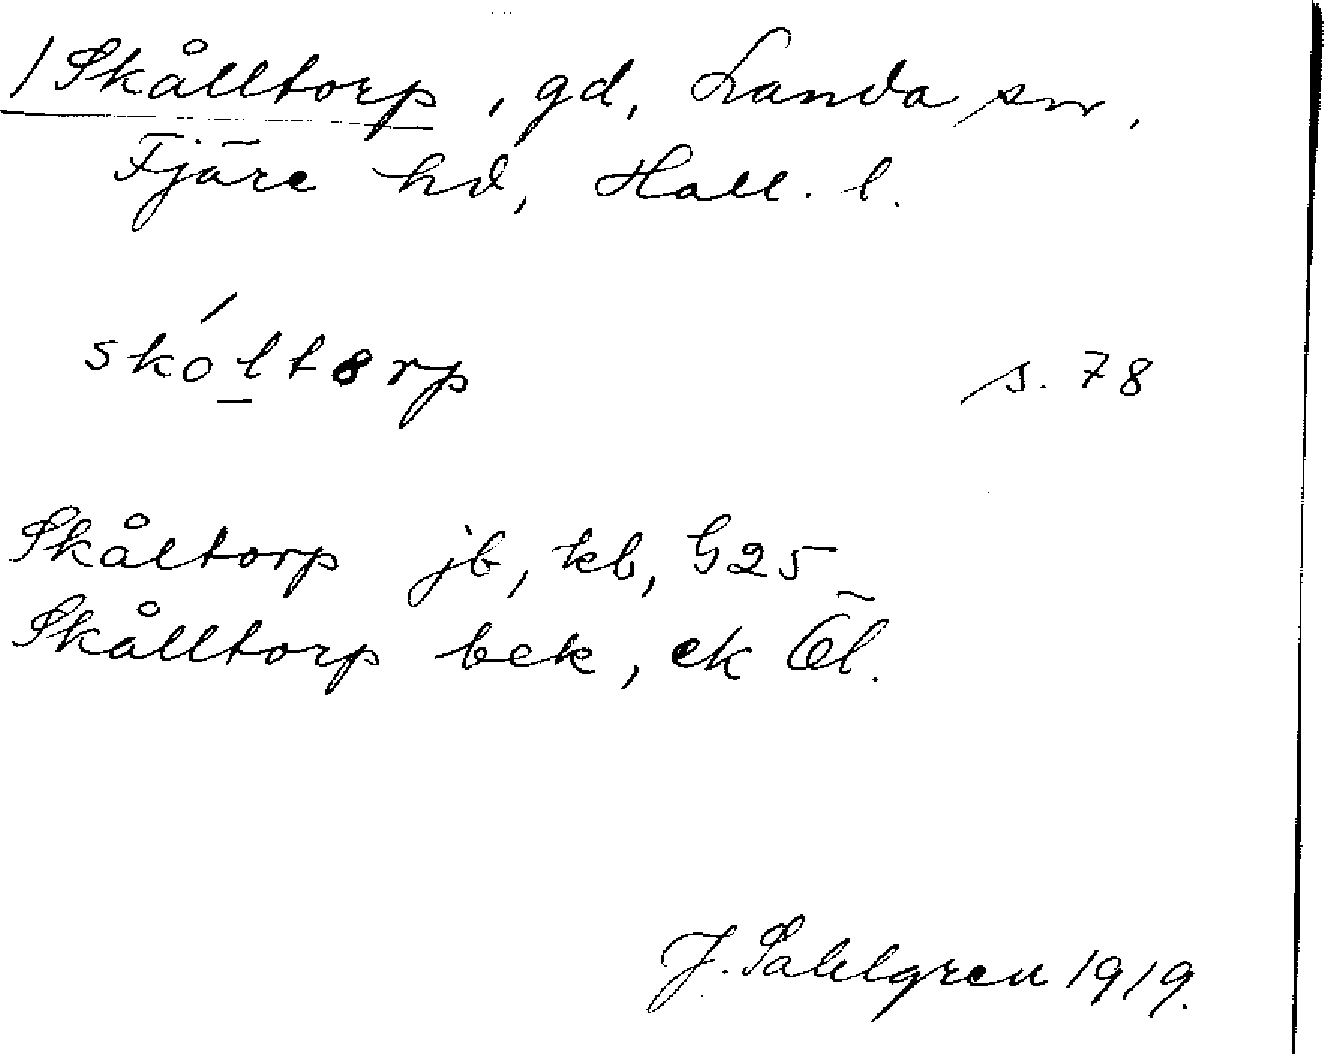 /Skålltorp, gd, Landa sn,
Fjäre hd, Hall. l.
skóltorp s. 78
Skåltorp jb, kb, G25
Skålltorp bek, ek Öl.
J. Sahlgren 1919.